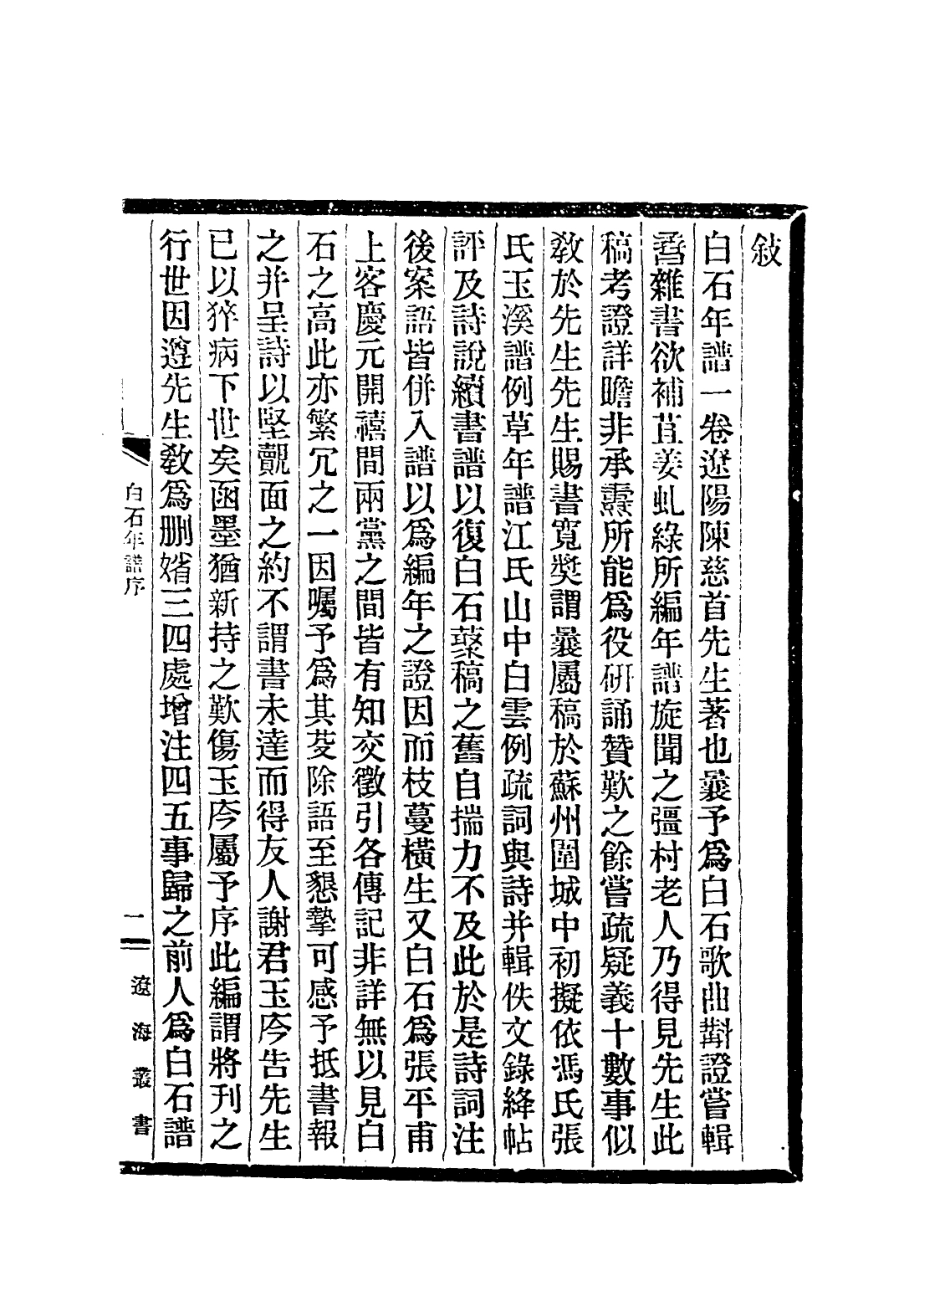 敍
白石年譜一卷遼陽陳慈首先生著也曩予爲白石歌曲斠證嘗輯
舊雜書欲補苴姜虬綠所編年譜旋聞之彊村老人乃得見先生此
稿考證詳瞻非承燾所能爲役硏誦贊歎之餘嘗疏疑義十數事似
敎於先生先生賜書寬奬謂曩屬稿於蘇州圍城中初擬依馮氏張
氏玉溪譜例草年譜江氏山中白雲例疏詞與詩并輯佚文錄絳帖
評及詩說續書譜以復白石叢稿之舊自揣力不及此於是詩詞注
後案語皆併入譜以爲編年之證因而枝蔓橫生又白石爲張平甫
上客慶元開禧間兩黨之間皆有知交徵引各傳記非詳無以見白
石之高此亦繁冗之一因囑予爲其芟除語至懇摯可感予抵書報
之并呈詩以堅覿面之約不謂書未達而得友人謝君玉岑告先生
已以猝病下世矣函墨猶新持之歎傷玉岑屬予序此編謂將刊之
行世因遵先生敎爲删㛸三四處增注四五事歸之前人爲白石譜
白石年譜序
一
遼海叢書